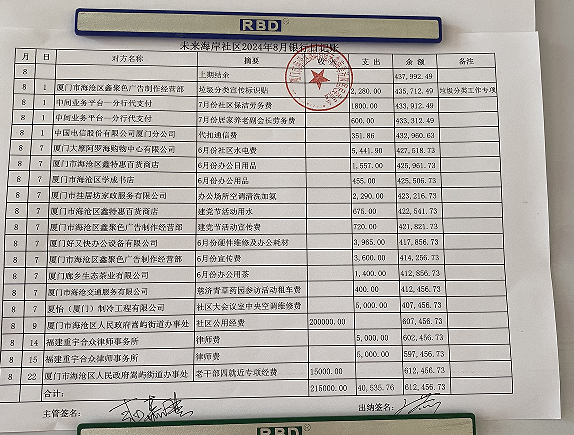 RBD
未来海岸社区2024年8月银行日记账
月 日 对方名称 摘要 收 支出 余额 备注
8 上期结余 437,992.49
8 1 厦门市海沧区鑫聚色广告制作经营部 垃圾分类宣传标识贴 2,280.00 435,712.49 垃圾分类工作专项
8 1 中间业务平台—分行代支付 7月份社区保洁劳务费 1800.00 433,912.49
8 1 中间业务平台—分行代支付 7月份居家养老副会长劳务费 600.00 433,312.49
8 1 中国电信股份有限公司厦门分公司 代扣通信费 351.86 432,960.63
8 7 厦门大摩阿罗海购物中心有限公司 6月份社区水电费 5,441.90 427,518.73
8 7 厦门市海沧区鑫特惠百货商店 6月份办公日用品 1,557.00 425,961.73
8 7 厦门市海沧区学成书店 6月份办公用品 455.00 425,506.73
8 7 厦门市挂居坊家政服务有限公司 办公场所空调清洗加氨 2,290.00 423,216.73
8 7 厦门市海沧区鑫特惠百货商店 建党节活动用水 675.00 422,541.73
8 7 厦门市海沧区鑫聚色广告制作经营部 建党节活动宣传费 720.00 421,821.73
8 7 厦门好又快办公设备有限公司 6月份硬件维修及办公耗材 3,965.00 417,856.73
8 7 厦门市海沧区鑫聚色广告制作经营部 6月份宣传费 3,600.00 414,256.73
8 7 厦门廊乡生态茶业有限公司 6月份办公用茶 1,400.00 412,856.73
8 7 厦门市海沧交通服务有限公司 慈济青草药园参访活动租车费 400.00 412,456.73
8 7 夏怡（厦门）制冷工程有限公司 社区大会议室中央空调维修费 5,000.00 407,456.73
8 9 厦门市海沧区人民政府嵩屿街道办事处 社区公用经费 200000.00 607,456.73
8 14 福建重宇合众律师事务所 律师费 5,000.00 602,456.73
8 15 福建重宇合众律师事务所 律师费 5,000.00 597,456.73
8 22 厦门市海沧区人民政府嵩屿街道办事处 老干部四就近专项经费 15000.00 612,456.73
合计： 215000.00 40,535.76 612,456.73
主管签名： 出纳签名：
RBD